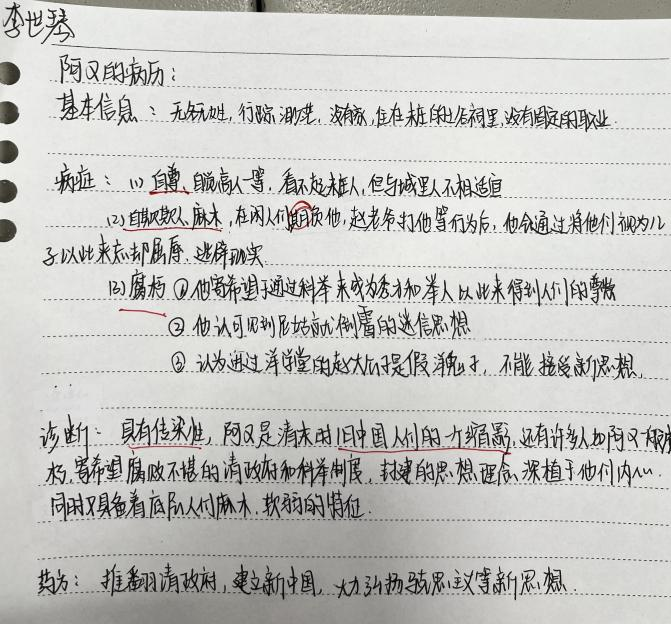 李世琴
阿Q的病历：
基本信息：无名无姓，行踪渺茫，没有家，住在未庄的土谷祠里，没有固定的职业．
病症：(1) 自尊、自觉高人一等，看不起未庄人，但与城里人不相适宜
(2) 自欺欺人、麻木，在闲人们欺负他，赵老爷打他等行为后，他会通过将他们视为儿
子以此来忘却屈辱，逃避现实
(3) 腐朽 ① 他寄希望于通过科举来成为秀才和举人以此来得到人们的尊敬
② 他认可见到尼姑就倒霉的迷信思想
③ 认为进过洋学堂的赵大爷子是假洋鬼子，不能接受新思想．
诊断：具有传染性，阿Q是清末时旧中国人们的一个缩影，还有许多人如阿Q般腐
朽，寄希望腐败不堪的清政府和科举制度，封建的思想理念深植于他们内心．
同时又具备着底层人们麻木、软弱的特征．
药方：推翻清政府，建立新中国，大力弘扬马克思主义等新思想．